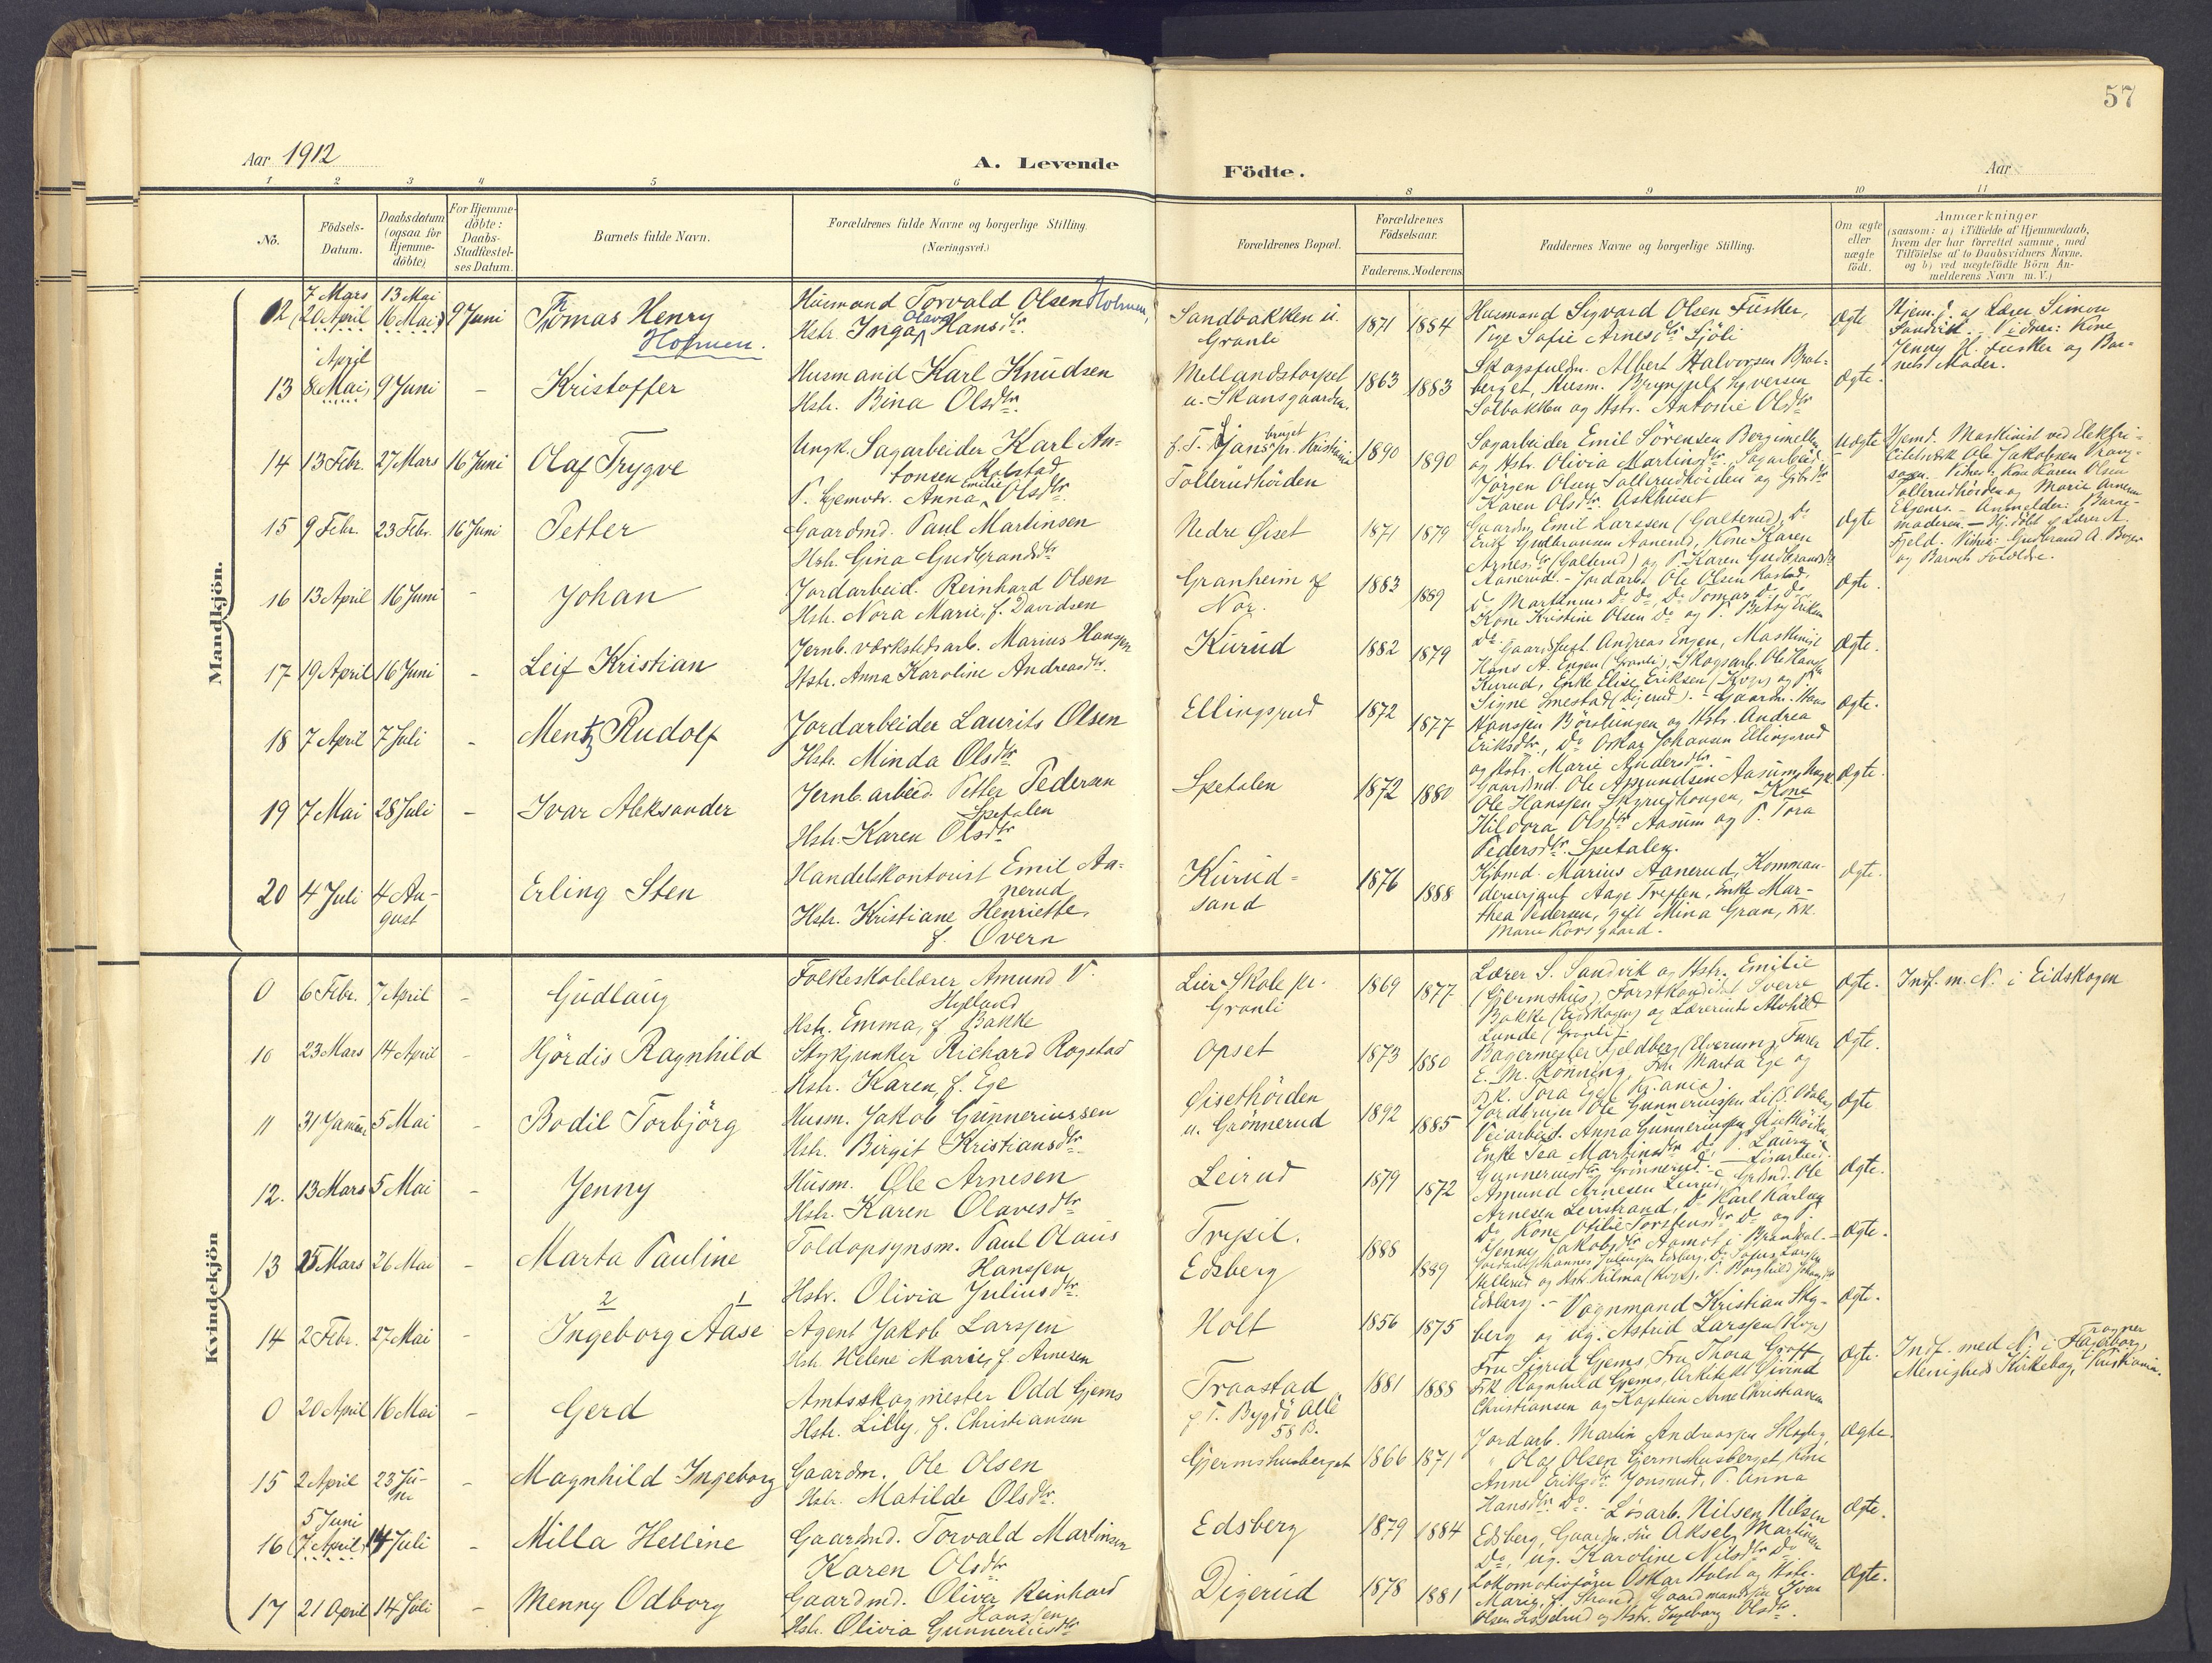 57
Aar 1912
A. Levende
Födte.
Aar
1 2 3 4 5 6 8 9 10 11
No.
Födsels-
Datum.
Daabsdatum
(ogsaa for
Hjemme-
döbte)
For Hjemme-
döbte:
Daabs-
Stadfæstel-
ses Datum.
Barnets fulde Navn.
Forældrenes fulde Navne og borgerlige Stilling.
(Næringsvei.)
Forældrenes Bopæl.
Forældrenes
Födselsaar.
Faderens. Moderens.
Faddernes Navne og borgerlige Stilling.
Om ægte
eller
uægte
födt.
Anmærkninger
(saasom: a) i Tilfælde af Hjemmedaab,
hvem der har forrettet samme, med
Tilföielse af to Daabsvidners Navne.
og b) ved uægtefödte Börn An-
melderens Navn m. V.)
Mandkjön.
12 7 Mars 13 Mai 9 Juni
(20 April 16 Mai)
Thomas Henry
Holmen.
Husmand Torvald Olsen Holmen,
Hstr. Inga Olava Hansdtr.
Sandbakken u.
Granli
1871 1884
Husmand Sigvard Olsen Fusker,
Pige Sofie Arnesdtr Sjöli
Ægte
Hjem.d. af Lærer Simon
Sandvik. Vidner: Kone
Jenny H. Fusker og Bar-
nets Moder.
13 April
8 Mai, 9 Juni -
Kristoffer
Husmand Karl Knudsen
Hstr. Bina Olsdtr.
Mellandstorpet
u. Skansgaarden.
1863 1883
Skogsfuldm. Albert Halvorsen Brat-
berget, Husm. Brynjulf Syversen
Solbakken og Hstr. Antonie Olsdtr
Ægte.
14 13 Febr. 27 Mars 16 Juni
Olaf Trygve
Ungk. Sagarbeider Karl An-
tonsen Rolstad
P. Hjemvær. Anna Emilie Olsdtr.
Tollerudhöiden
1890 1890
Sagarbeider Emil Sörensen Bergimellem
og Hstr. Olivia Martinsdtr, Sagarbeid.
Jörgen Olsen Tollerudhöiden og
Karen Olsdtr. Askhuset
Uægte
Hjemd. Maskinist ved Elektri-
citetsværk Ole Jakobsen
Vidner: Kone Karen Olsen
Tollerudhöiden og Marie Arnesen
Anmelder: Barne-
moderen. - Hj. döbt af Lærer A.
Fjeld. Vidner: Gudbrand A.
og Barnets Forældre.
15 9 Febr. 23 Febr. 16 Juni
Petter
Gaardmd. Paul Martinsen
Hstr. Gina Gudbrandsdtr
Nedre Öiset
1871 1879
Gaardm. Emil Larssen (Galterud), Do
Erik Gudbransen Aanerud, Kone Karen
Arnesdtr (Galterud) og P. Karen Gudbrandsdtr
Aanerud.
Ægte
16 13 April 16 Juni -
Johan
Jordarbeid. Reinhard Olsen
Hstr. Nora Marie, f. Davidsen
Granheim af
Nor.
1883 1889
Jordarb. Ole Olsen Rastad,
Do Martinius Do Do, Do Tomas Do Do,
Kone Kristine Olsen Do og P. Betsy Eriksen
Do.
Ægte.
17 19 April 16 Juni -
Leif Kristian
Jernb. værkstedsarb. Marius Hanssen
Hstr. Anna Karoline Andreasdtr.
Kurud
1882 1879
Andreas Engen, Maskinist
Hans A. Engen (Granli), Skogsarb. Ole Hansen
Kurud, Enke Elise Eriksen
Signe Smestad (Digerud).
Ægte.
18 7 April 7 Juli -
Mentz Rudolf
Jordarbeider Laurits Olsen
Hstr. Minda Olsdtr
Ellingsrud
1872 1877
Gaardm. Hans
Hanssen Börslungen og Hstr. Andrea
Eriksdtr., Do Oskar Johansen Ellingsrud
og Hstr. Marie Andersdtr. -
Ægte.
19 7 Mai 28 Juli -
Ivar Aleksander
Jernb.arbeid. Petter Pedersen
Spetalen
Hstr. Karen Olsdtr
Spetalen
1872 1880
Gaardmd. Ole Asmundsen Aasum, Ungk.
Ole Hanssen Skyrudhaugen, Kone
Hildora Olsdtr. Aasum og P. Tora
Pedersdtr. Spetalen.
Ægte.
20 4 Juli 4 Au-
gust
Erling Sten
Handelskontorist Emil Aa-
nerud
Hstr. Kristiane Henriette,
f. Overn
Kurud-
sand
1876 1888
Kjbmd. Marius Aanerud, Komman-
dersersjant Aage Treffen, Enke Mar-
thea Pedersen, gift Mina Gran, frk.
Marie Korsgaard.
Ægte.
Kvindekjön
0 6 Febr. 7 April -
Gudlaug
Folkeskolelærer Amund V.
Hylland
Hstr. Emma, f. Bakke
Lier Skole pr.
Granli
1869 1877
Lærer S. Sandvik og Hstr. Emilie
(Gjermshus), Forstkandidat Sverre
Bakke (Eidskogen) og Lærerinde Alvhild
Lunde (Granli).
Ægte.
Indf. m. N. i Eidskogen
10 23 Mars 14 April -
Hjördis Ragnhild
Stykjunker Richard Rogstad
Hstr. Karen, f. Ege
Opset
1873 1880
Bagermester Kjeldberg (Elverum), Furer
E. M. Rönning, Fru Marta Ege og
frk. Tora Ege (Kr.ania).
Ægte.
11 31 Januar 5 Mai -
Bodil Torbjörg
Husm. Jakob Gunneriussen
Hstr. Birgit Kristiansdtr.
Öisethöiden
u. Grönnerud
1892 1885
Jordbruger Ole Gunneriussen
Veiarbeid. Anna Gunneriussen Öisethöiden
Enke Tea Martinsdtr Do, P. Laura
Gunneriusdtr Grönnerud.
Ægte
12. 13 Mars 5 Mai -
Jenny
Husm. Ole Arnesen
Hstr. Karen Olavesdtr
Leirud
1879 1872
Lösarbeid.
Amund Arnesen Leirud, Grdmd. Ole
Arnesen Leirstrand, Do Karl Karlsen
Do Kone Otilie Torstensdtr Do og P.
Jenny Jakobsdtr Aamot i Brandval.
Ægte.
13 25 Mars 26 Mai -
Marta Pauline
Toldopsynsm. Paul Olaus
Hanssen
Hstr. Olivia Juliusdtr.
Trysil.
Edsberg
1888 1889
Johannes Juliussen Edsberg, Do Sofus Larssen
Hellerud og Hstr. Hilma, P. Borghild
Edsberg.
Ægte.
14 2 Febr. 27 Mai -
2 1
Ingeborg Aase
Agent Jakob Larssen
Hstr. Helene Marie, f. Arnesen
Holt
1856 1875
Vognmand Kristian Sky-
berg og Ug. Astrid Larssen
Ægte.
0 20 April 16 Mai -
Gerd
Amtsskogmester Odd Gjems
Hstr. Lilly, f. Christiansen
Traastad
f. T. Bygdö Alle
58 B.
1881 1888
Fru Sigrid Gjems, Fru Thora Gröff,
Frk Ragnhild Gjems, Arkitekt Eivind
Christiansen og Kaptein Arne Christiansen
Ægte.
Indf. med N. i Frogner
Menigheds Kirkebog, Kristiania.
15 2 April 23 Ju-
ni -
Magnhild Ingeborg
Gaardm. Ole Olsen
Hstr. Matilde Olsdtr.
Gjermshusberget
1866 1871
Jordarb. Martin Andreassen Skogly,
" Olaf Olsen Gjermshusberget, Kone
Anne Eriksdtr. Jonsrud, P. Anna
Hansdtr. Do. -
Ægte.
16 5 Juni
(7 April) 14 Juli -
Milla Helline
Gaardmd. Torvald Martinsen
Karen Olsdtr
Edsberg
1879 1884
Lösarb. Nilsen Nilsen
Edsberg, Aksel Martinsen
Do, Ug. Karoline Nilsdtr Do
Ægte.
17 21 April 14 Juli -
Menny Odborg
Gaardmd. Oliver Reinhard
Hanssen
Hstr. Olivia Gunneriusdtr
Digerud
1878 1881
Lokomotivförer Oskar Holst og Hstr.
Marie, f. Strand, Gaardmandssön Ivar
Olsen og Hstr. Ingeborg Olsdtr.
Ægte.